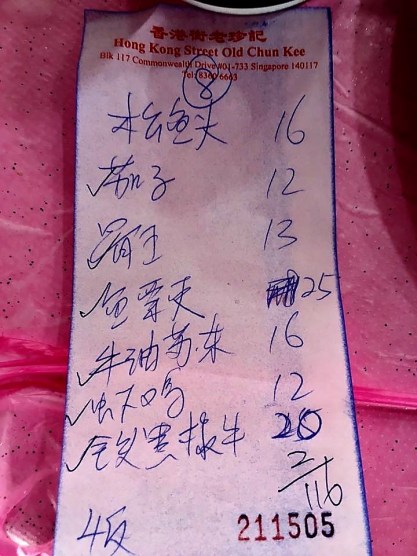 香港街老珍記
Hong Kong Street Old Chun Kee
Blk 117 Commonwealth Drive #01-733 Singapore 140117
Tel: 8360 6663
8
松鱼头 16
茄子 12
13
25
牛油 16
12
黑椒牛 20
2
116
4反
211505